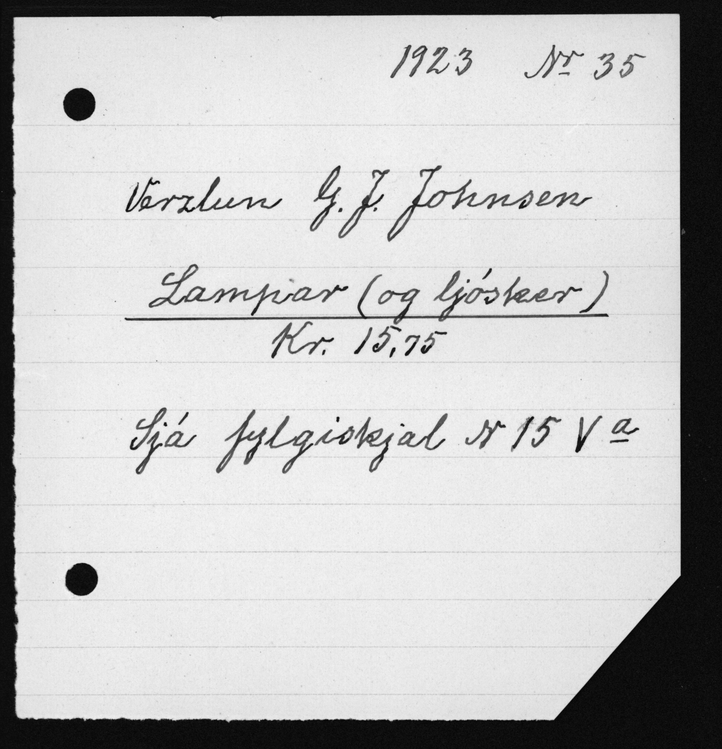 1923 Nr 35
Verzlun G. J. Johnsen
Lampar (og ljósker)
Kr. 15,75
Sjá fylgiskjal N 15 V a